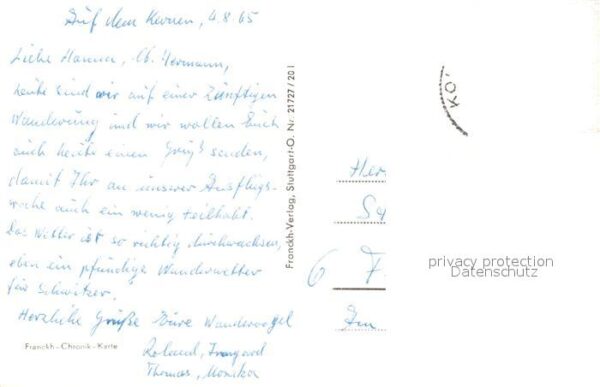 Auf dem Kernen, 4.8.65
Liebe Hanna, lb. Hermann,
heute sind wir auf einer zünftigen
Wanderung und wir wollen Euch
auch heute einen Gruß senden,
damit Ihr an unserer Ausflugs-
woche auch ein wenig teilhabt.
Das Wetter ist so richtig durchwachsen,
eben ein pfundiges Wanderwetter
für Schwitzer.
Herzliche Grüße Eure Wandervögel
Roland, Irmgard
Thomas, Monika
Franckh-Chronik-Karte
Franckh-Verlag, Stuttgart-O. Nr. 21727/20 I
KÖ
Her
6 F
privacy protection
Datenschutz
Am